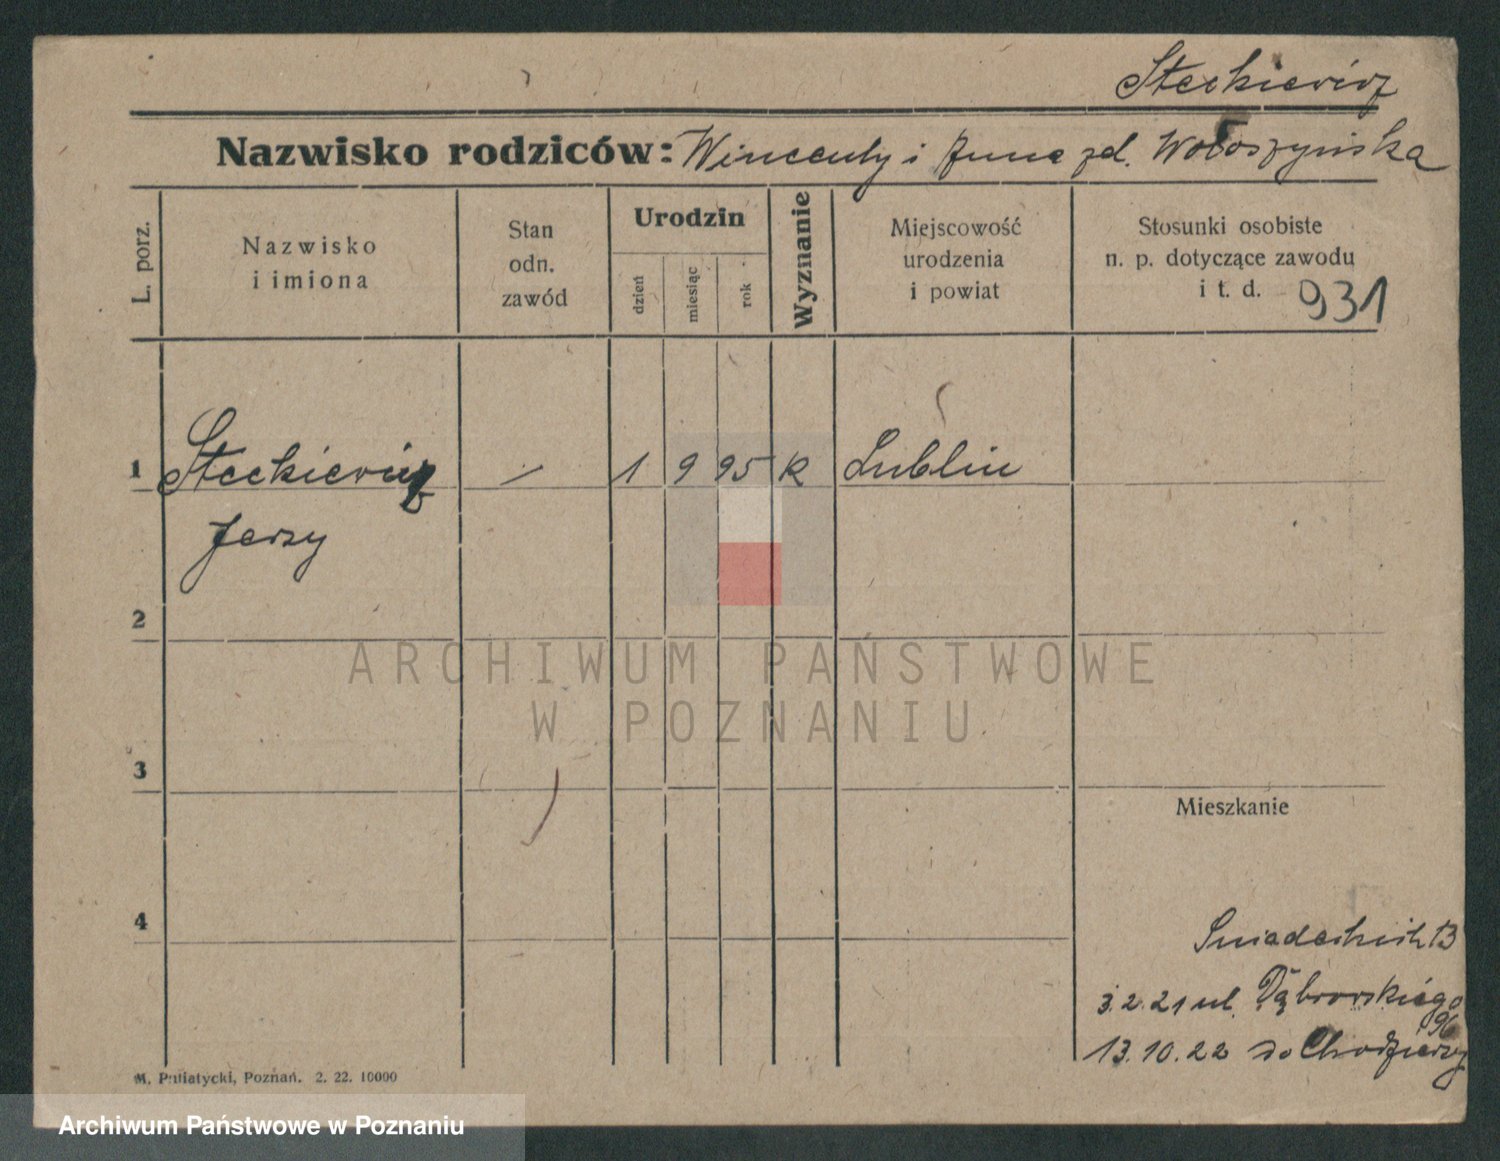 Steckiewicz
Nazwisko rodziców: Wincenty i Anna zd. Wołoszyńska
L. porz.
Nazwisko
i imiona
Stan
odn.
zawód
Urodzin
dzień
miesiąc
rok
Wyznanie
Miejscowość
urodzenia
i powiat
Stosunki osobiste
n. p. dotyczące zawodu
i t. d. 931
1 Steckiewicz — 1 9 95 k Lublin
Jerzy
2
ARCHIWUM PAŃSTWOWE
W POZNANIU
3
Mieszkanie
4
Śniadeckich 13
3.2.21 ul. Dąbrowskiego
96
13.10.22 do Chodzieży
M. Putiatycki, Poznań. 2. 22. 10000
Archiwum Państwowe w Poznaniu